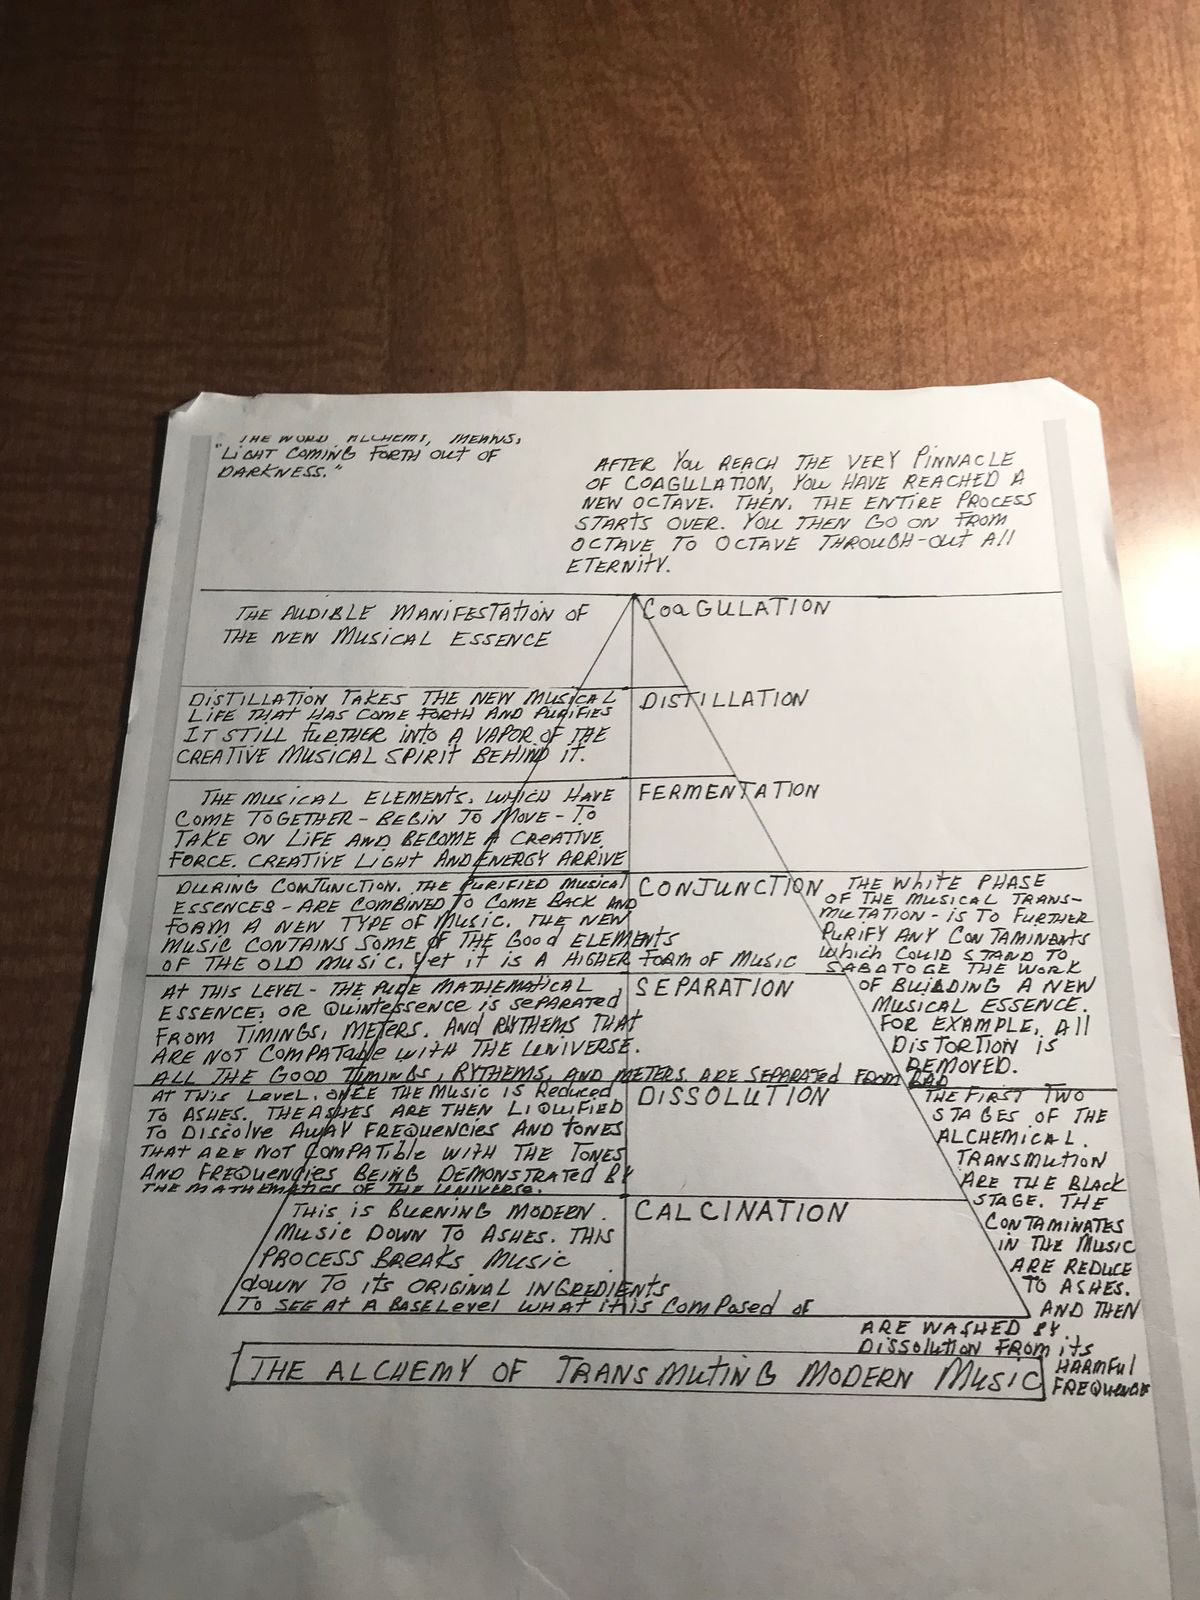 THE WORD ALCHEMY, MEANS,
"LIGHT COMING FORTH OUT OF
DARKNESS."
AFTER YOU REACH THE VERY PINNACLE
OF COAGULATION, YOU HAVE REACHED A
NEW OCTAVE. THEN. THE ENTIRE PROCESS
STARTS OVER. YOU THEN GO ON FROM
OCTAVE TO OCTAVE THROUGH-OUT All
ETERNITY.
THE AUDIBLE MANIFESTATION OF
THE NEW MUSICAL ESSENCE
COAGULATION
DISTILLATION TAKES THE NEW MUSICAL
LIFE THAT HAS COME FORTH AND PURIFIES
IT STILL FURTHER INTO A VAPOR OF THE
CREATIVE MUSICAL SPIRIT BEHIND IT.
DISTILLATION
THE MUSICAL ELEMENTS. WHICH HAVE
COME TOGETHER - BEGIN TO MOVE - TO
TAKE ON LIFE AND BECOME A CREATIVE
FORCE. CREATIVE LIGHT AND ENERGY ARRIVE
FERMENTATION
DURING CONJUNCTION. THE PURIFIED MUSICAL
ESSENCES - ARE COMBINED TO COME BACK AND
FORM A NEW TYPE OF MUSIC. THE NEW
MUSIC CONTAINS SOME OF THE GOOD ELEMENTS
OF THE OLD MUSIC. Yet it IS A HIGHER FORM OF MUSIC
CONJUNCTION
THE WHITE PHASE
OF THE MUSICAL TRANS-
MUTATION - IS TO FURTHER
PURIFY ANY CONTAMINENTS
WHICH COULD STAND TO
SABATOGE THE WORK
OF BUILDING A NEW
MUSICAL ESSENCE.
FOR EXAMPLE, All
DISTORTION IS
REMOVED.
AT THIS LEVEL - THE PURE MATHEMATICAL
ESSENCE, OR QUINTESSENCE IS SEPARATED
FROM TIMINGS, METERS, AND RYTHEMS THAT
ARE NOT COMPATABLE WITH THE UNIVERSE.
ALL THE GOOD TIMINGS, RYTHEMS, AND METERS ARE SEPARATED FROM BAD
SEPARATION
AT THIS LEVEL. ONCE THE MUSIC IS REDUCED
TO ASHES. THE ASHES ARE THEN LIQUIFIED
TO DISSOLVE AWAY FREQUENCIES AND TONES
THAT ARE NOT COMPATIBLE WITH THE TONES
AND FREQUENCIES BEING DEMONSTRATED BY
THE MATHEMATICS OF THE UNIVERSE.
DISSOLUTION
THE FIRST TWO
STAGES OF THE
ALCHEMICAL.
TRANSMUTION
ARE THE BLACK
STAGE. THE
CONTAMINATES
IN THE MUSIC
ARE REDUCE
TO ASHES.
AND THEN
ARE WASHED BY.
DISSOLUTION FROM its
HARMFUL
THIS IS BURNING MODERN.
MUSIC DOWN TO ASHES. THIS
PROCESS BREAKS MUSIC
DOWN TO ITS ORIGINAL INGREDIENTS
TO SEE AT A BASE LEVEL WHAT IT IS COMPOSED OF
CALCINATION
THE ALCHEMY OF TRANSMUTING MODERN MUSIC